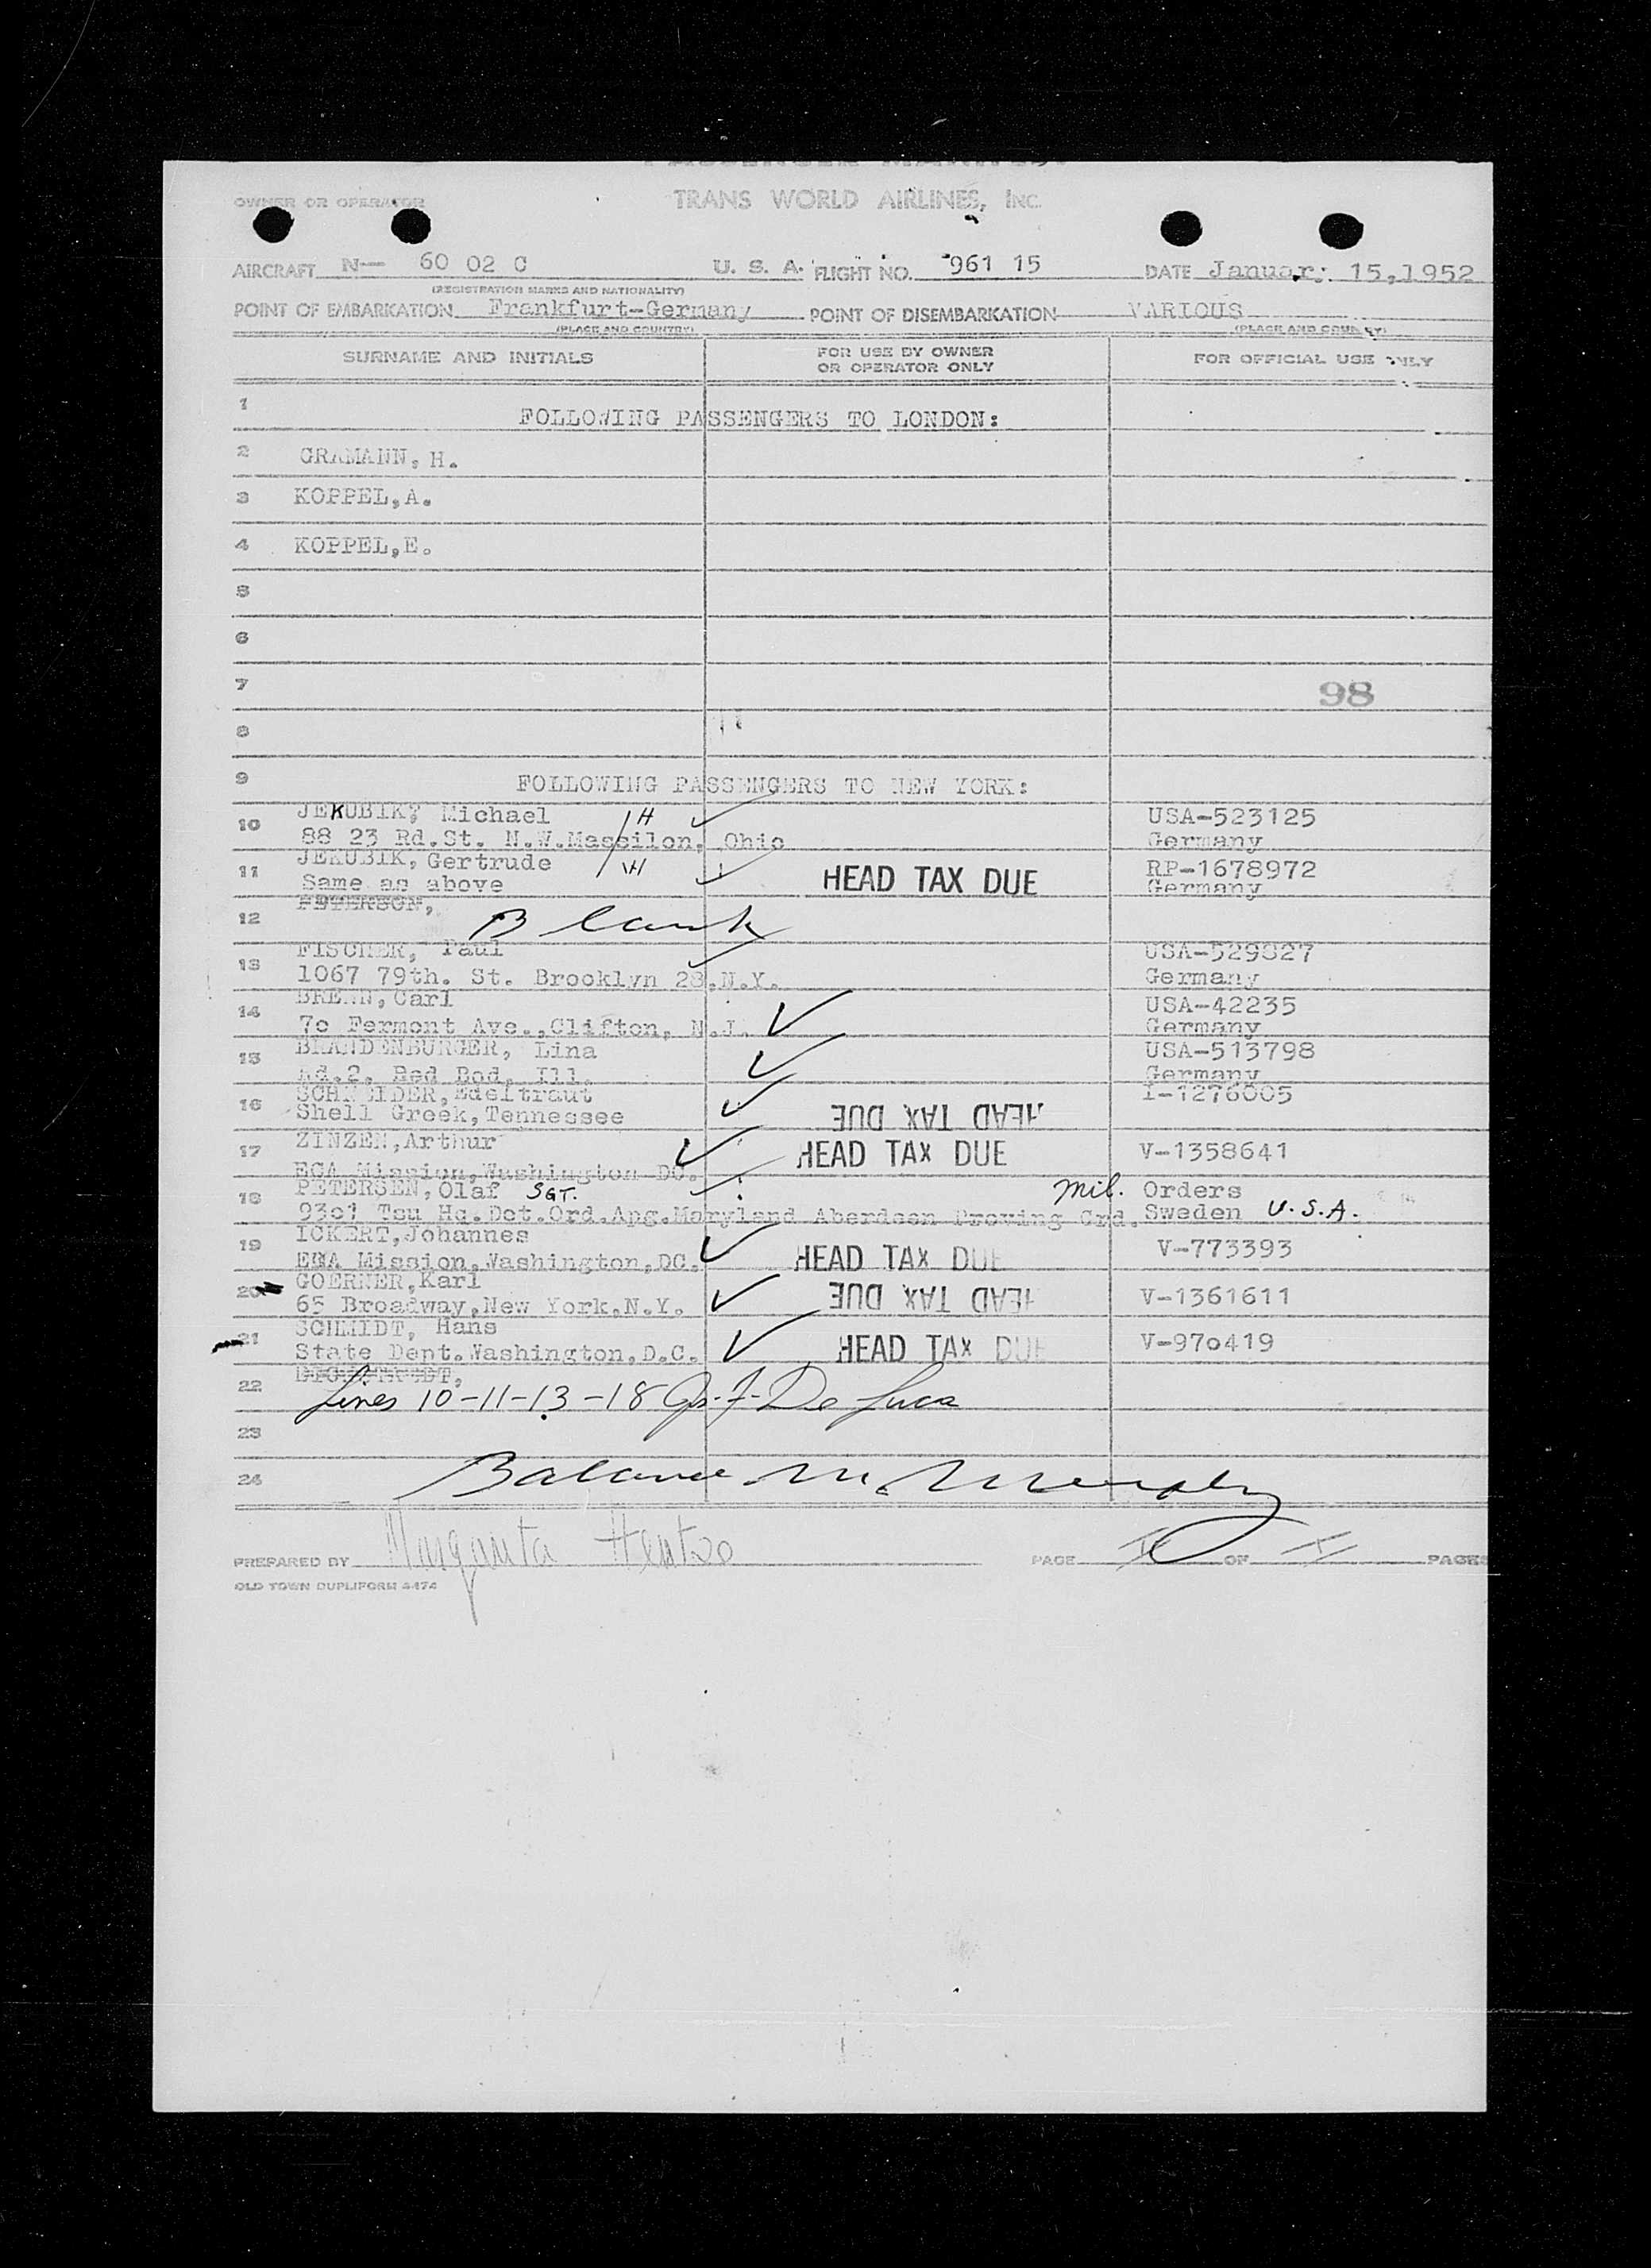 OWNER OR OPERATOR
TRANS WORLD AIRLINES, INC.
AIRCRAFT N— 60 02 C U. S. A. FLIGHT NO. 961 15 DATE January 15,1952
(REGISTRATION MARKS AND NATIONALITY)
POINT OF EMBARKATION Frankfurt-Germany POINT OF DISEMBARKATION VARIOUS
(PLACE AND COUNTRY) (PLACE AND COUNTRY)
SURNAME AND INITIALS FOR USE BY OWNER OR OPERATOR ONLY FOR OFFICIAL USE ONLY
1 FOLLOWING PASSENGERS TO LONDON:
2 GRAMANN, H.
3 KOPPEL,A.
4 KOPPEL,E.
5
6
7 98
8
9 FOLLOWING PASSENGERS TO NEW YORK:
10 JEKUBIK, Michael USA-523125
88 23 Rd.St. N.W.Massilon, Ohio Germany
11 JEKUBIK, Gertrude HEAD TAX DUE RP-1678972
Same as above Germany
12 PETERSON, Blank
13 FISCHER, Paul USA-529827
1067 79th. St. Brooklyn 28,N.Y. Germany
14 BREHN, Carl USA-42235
7o Fermont Ave.,Clifton, N.J. Germany
15 BRANDENBURGER, Lina USA-513798
Rd.2. Red Bod, Ill. Germany
16 SCHNEIDER,Edeltraut HEAD TAX DUE I-1276005
Shell Greek,Tennessee
17 ZINZEN,Arthur HEAD TAX DUE V-1358641
ECA Mission,Washington DC.
18 PETERSEN,Olaf SGT. Mil. Orders
93o1 Tsu Hq.Det.Ord.Apg.Maryland Aberdeen Proving Grd. Sweden U.S.A.
19 ICKERT,Johannes HEAD TAX DUE V-773393
ECA Mission,Washington,DC.
20 GOERNER,Karl HEAD TAX DUE V-1361611
65 Broadway,New York,N.Y.
21 SCHMIDT, Hans HEAD TAX DUE V-97o419
State Dept.Washington,D.C.
22 Lines 10-11-13-18 Jos. F. De Luca
23
24 Balance M. Murphy
PREPARED BY Margarita Hentze PAGE II OF II PAGES
OLD TOWN DUPLIFORM 4474